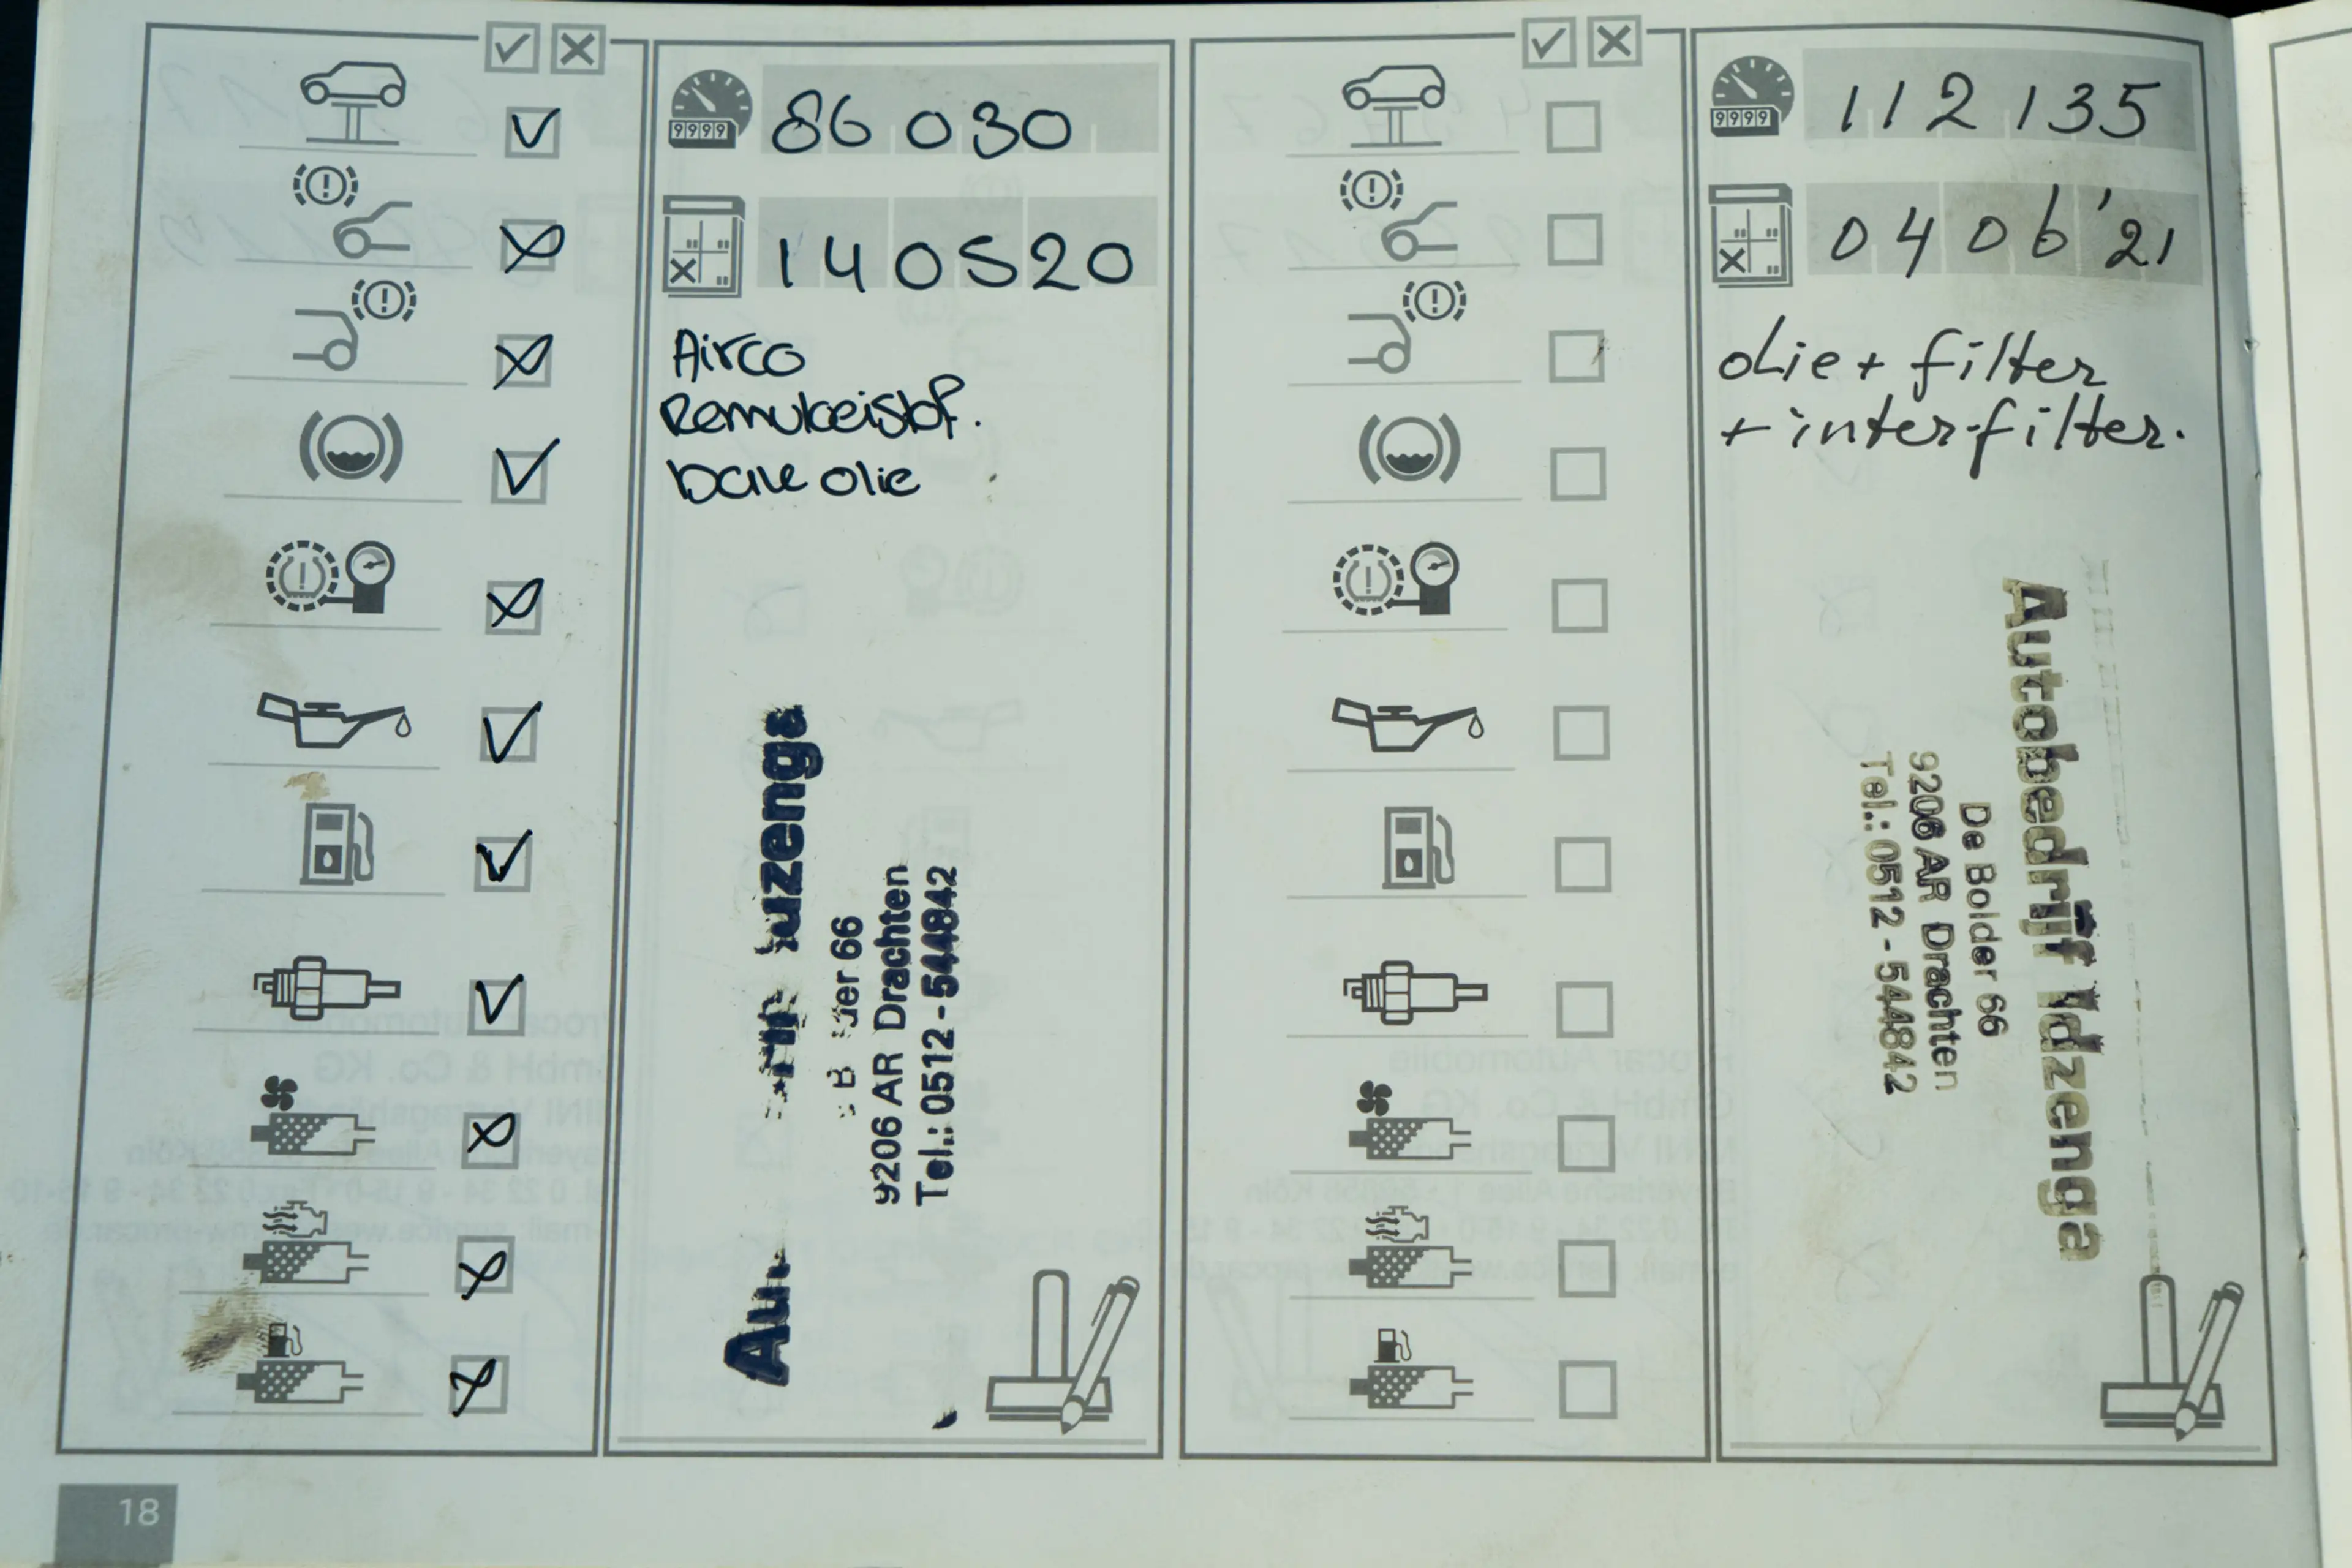 9999
86 030
140520
Airco
Remvloeistof.
bak olie
9206 AR Drachten
Tel.: 0512 - 544842
9999
112 135
04 06 '21
olie + filter
+ interfilter.
Autobedrijf Idzenga
De Bolder 66
9206 AR Drachten
Tel.: 0512 - 544842
18